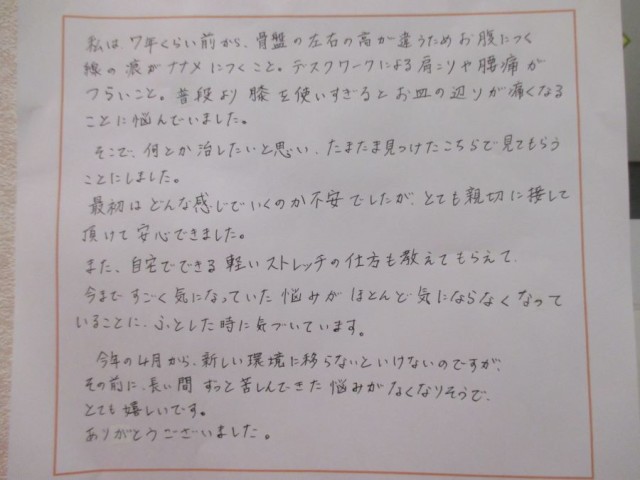 私は7年くらい前から、骨盤の左右の高が違うためお腹につく
線の痕がナナメにつくこと。デスクワークによる肩こりや腰痛が
つらいこと。普段より膝を使いすぎるとお皿の辺りが痛くなる
ことに悩んでいました。
そこで、何とか治したいと思い、たまたま見つけたこちらで見てもらう
ことにしました。
最初はどんな感じでいくのか不安でしたが、とても親切に接して
頂けて安心できました。
また、自宅でできる軽いストレッチの仕方も教えてもらえて、
今まですごく気になっていた悩みがほとんど気にならなくなって
いることに、ふとした時に気づいています。
今年の4月から、新しい環境に移らないといけないのですが、
その前に、長い間ずっと苦しんできた悩みがなくなりそうで、
とても嬉しいです。
ありがとうございました。